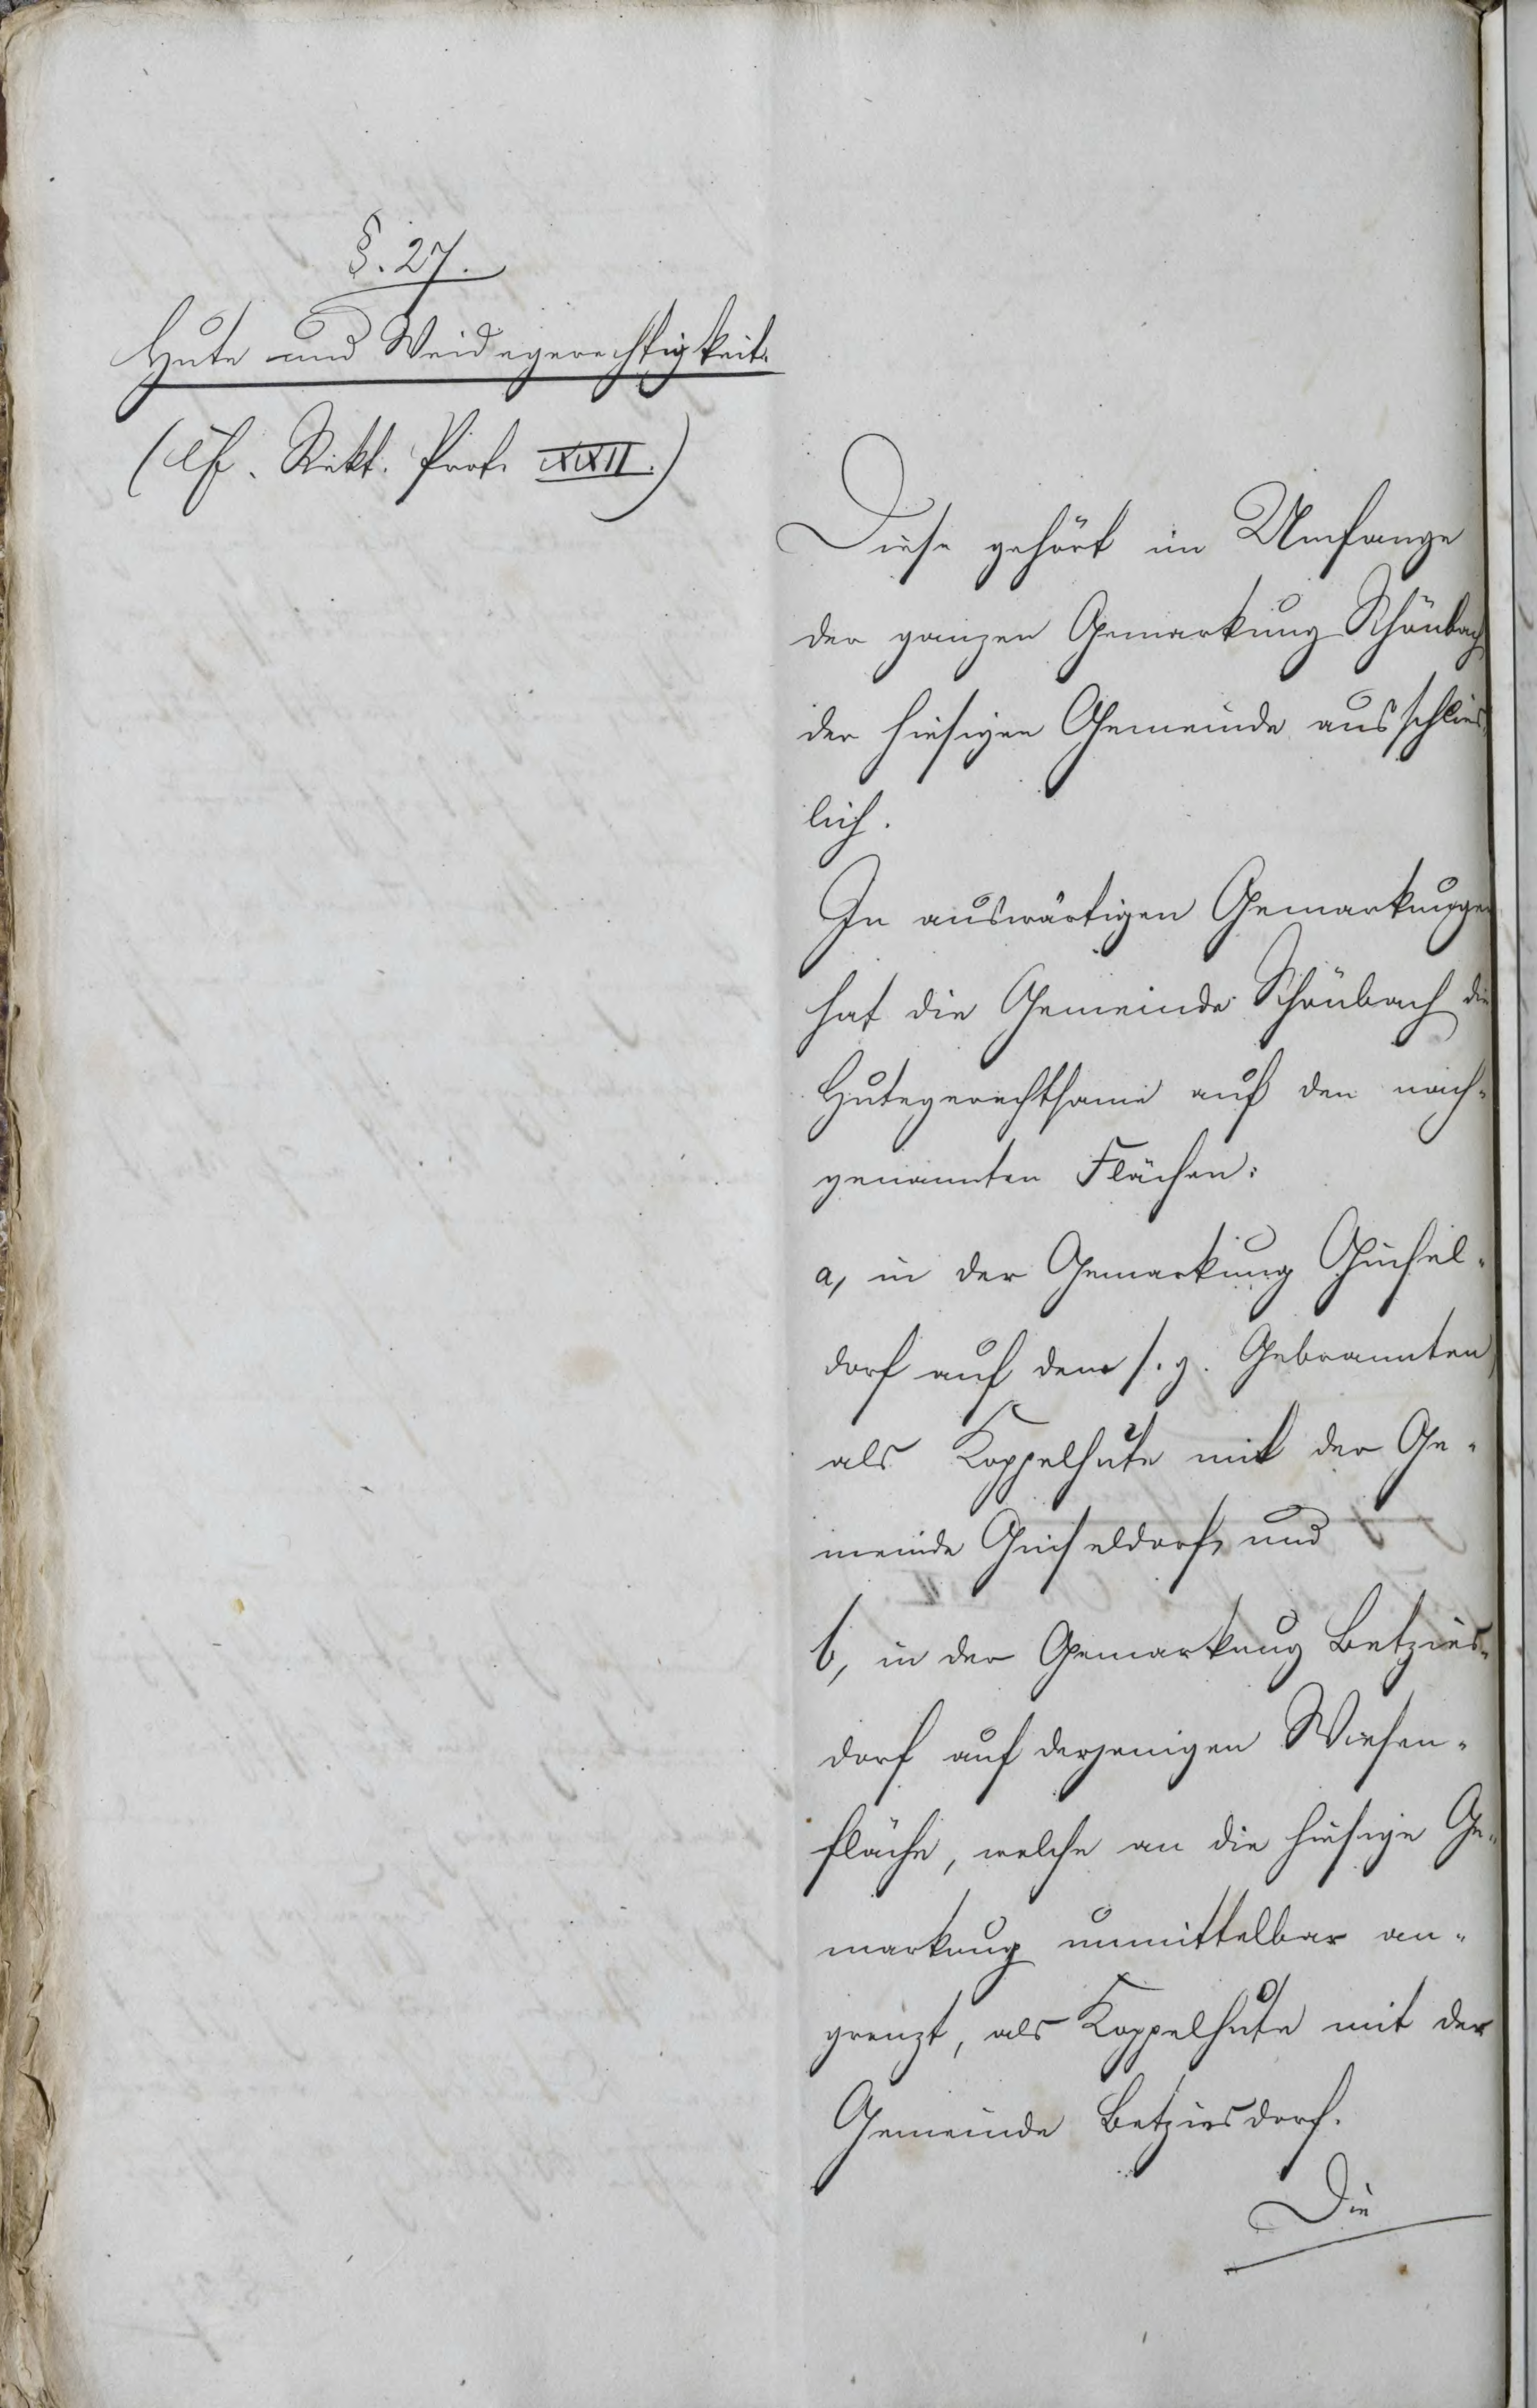 §. 27.
Hute und Weidegerechtigkeit.
(Cf. Rekt. Prot. XXII.)
Diese gehört im Umfange
der ganzen Gemarkung Schönbach
der hiesigen Gemeinde ausschlies-
lich.
In auswärtigen Gemarkungen
hat die Gemeinde Schönbach die
Hutegerechtsame auf den nach-
genannten Flächen:
a, in der Gemarkung Ginsel-
dorf auf dem s. g. Gebrannten
als Koppelhute mit der Ge-
meinde Ginseldorf, und
b, in der Gemarkung Betzies-
dorf auf derjenigen Wiesen-
fläche, welche an die hiesige Ge-
markung unmittelbar an-
grenzt, als Koppelhute mit der
Gemeinde Betziesdorf.
Die